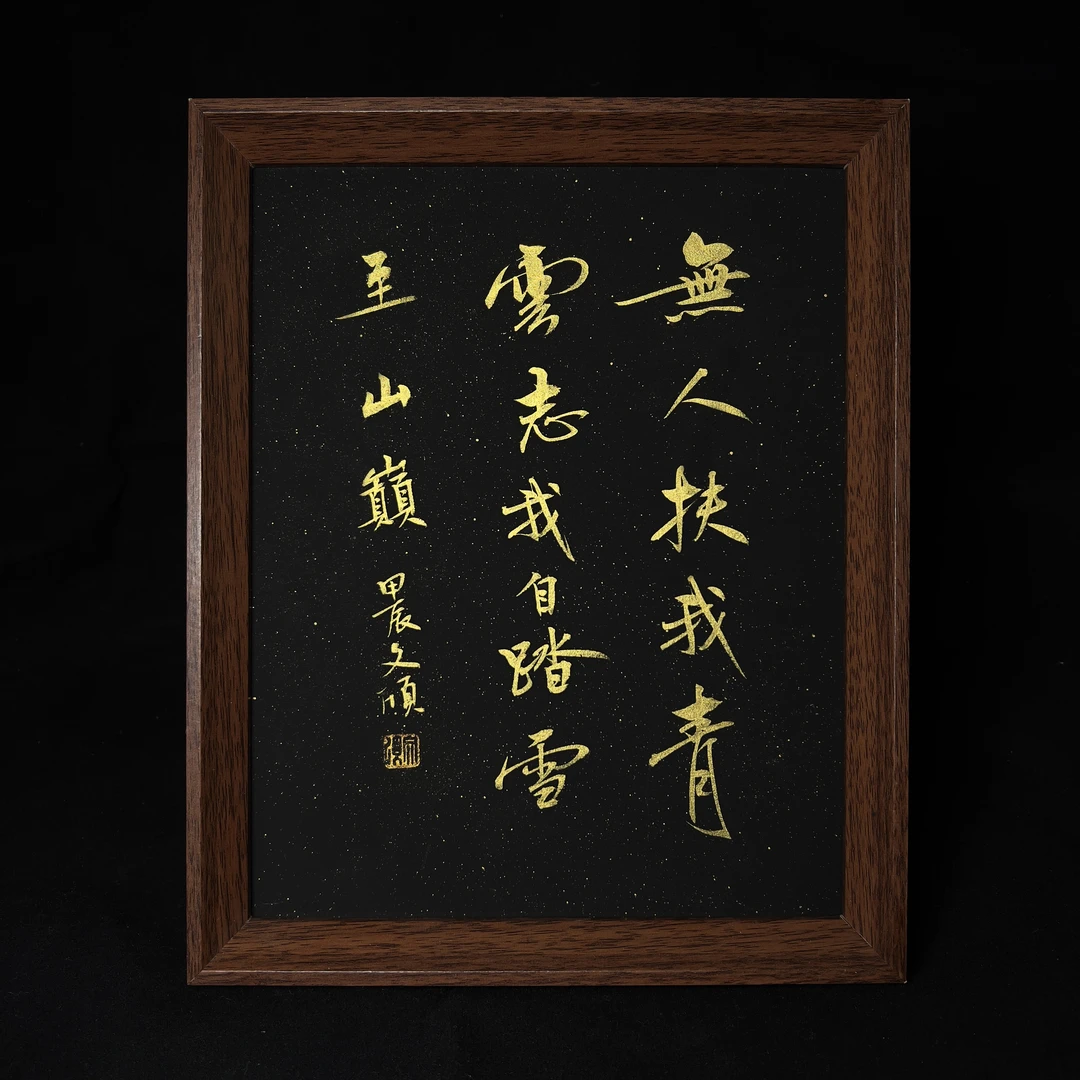 無人扶我青
雲志我自踏雪
至山巔
甲辰文碩